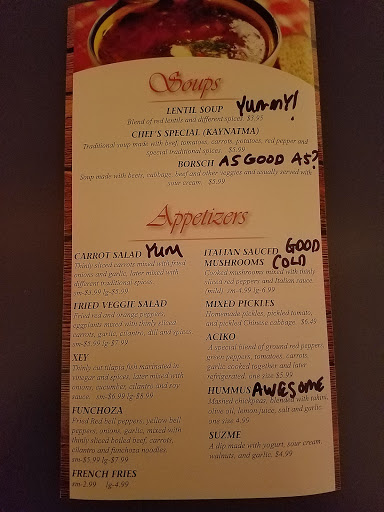 Soups
LENTIL SOUP Yummy!
Blend of red lentils and different spices $3.95
CHEF'S SPECIAL (KAYNATMA)
Traditional soup made with beef, tomatoes, carrots, potatoes, red pepper and
special traditional spices $5.99
BORSCH AS GOOD AS?
Soup made with beets, cabbage, beef and other veggies and usually served with
sour cream $5.99
Appetizers
CARROT SALAD Yum
Thinly sliced carrots mixed with fried
onions and garlic, later mixed with
different traditional spices
sm-$3.99 lg-$5.99
FRIED VEGGIE SALAD
Fried red and orange peppers,
eggplants mixed with thinly sliced
carrots, garlic, cilantro, dill and spices
sm-$5.99 lg-$7.99
XEY
Thinly cut tilapia fish marinated in
vinegar and spices, later mixed with
onions, cucumber, cilantro and soy
sauce. sm-$6.99 lg-$8.99
FUNCHOZA
Fried Red bell peppers, yellow bell
peppers, onions, garlic, mixed with
thinly sliced boiled beef, carrots,
cilantro and funchoza noodles
sm-$5.99 lg-$7.99
FRENCH FRIES
sm-2.99 lg-4.99
ITALIAN SAUCED GOOD
MUSHROOMS COLD
Cooked mushrooms mixed with thinly
sliced red peppers and Italian sauce
(mild) sm-4.99 lg-6.99
MIXED PICKLES
Homemade pickles, pickled tomato,
and pickled Chinese cabbage $6.49
ACIKO
A special blend of ground red peppers,
green peppers, tomatoes, carrots,
garlic cooked together and later
refrigerated one size $5.99
HUMMUS AWESOME
Mashed chickpeas, blended with tahini,
olive oil, lemon juice, salt and garlic
one size 4.95
SUZME
A dip made with yogurt, sour cream
walnuts, and garlic. $4.99